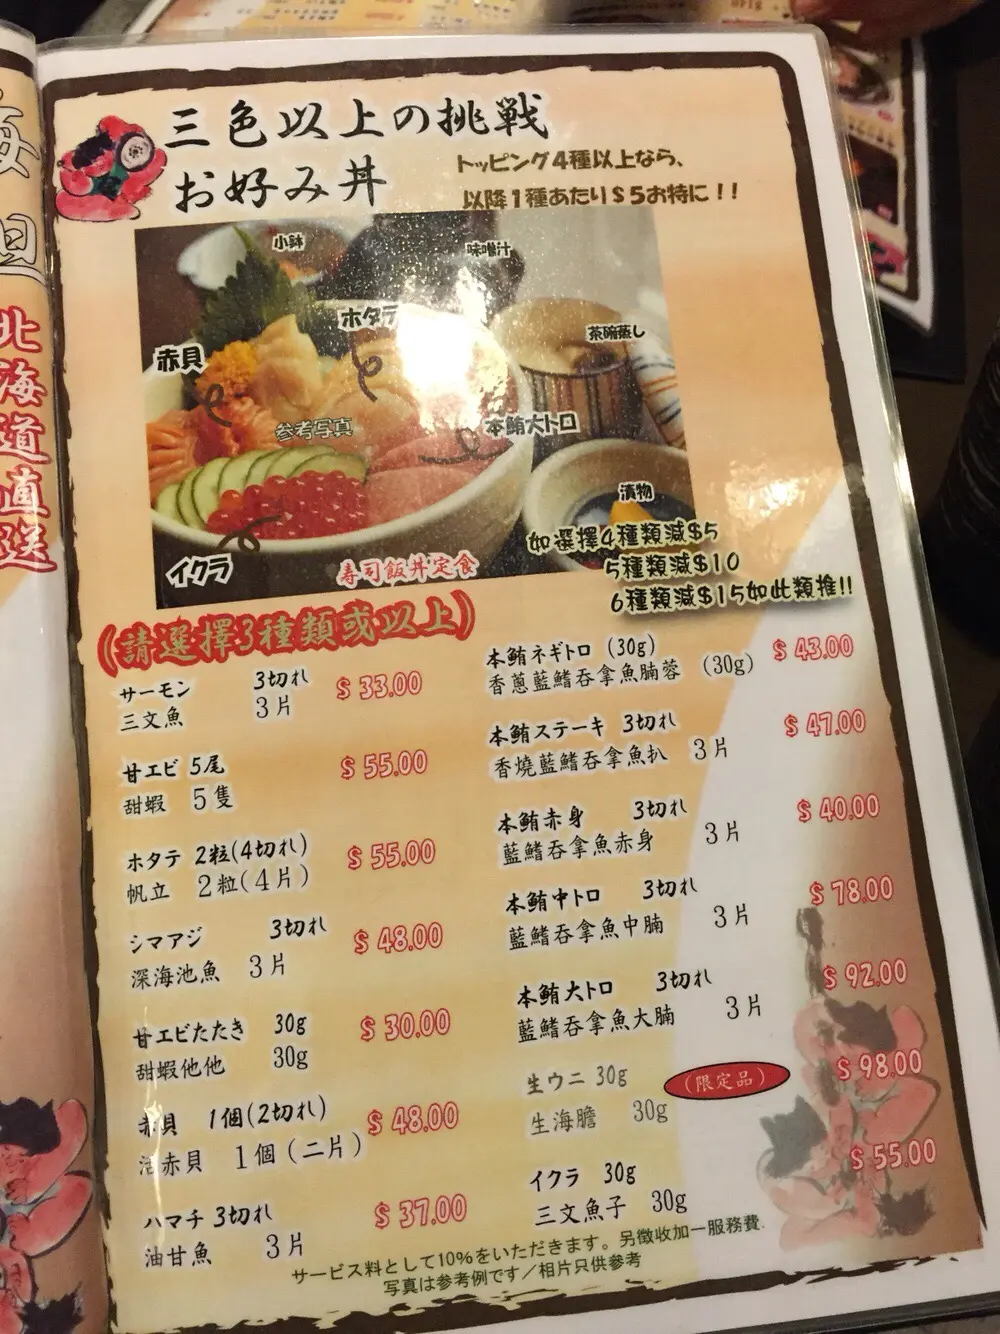 三色以上の挑戦
お好み丼
トッピング4種以上なら、
以降1種あたり$5お特に!!
小鉢
味噌汁
ホタテ
茶碗蒸し
赤貝
参考写真
本鮪大トロ
漬物
イクラ
寿司飯丼定食
如選擇4種類減$5
5種類減$10
6種類減$15如此類推!!
(請選擇3種類或以上)
サーモン 3切れ $33.00
三文魚 3片
甘エビ 5尾 $55.00
甜蝦 5隻
ホタテ 2粒(4切れ) $55.00
帆立 2粒(4片)
シマアジ 3切れ $48.00
深海池魚 3片
甘エビたたき 30g $30.00
甜蝦他他 30g
赤貝 1個(2切れ) $48.00
活赤貝 1個(二片)
ハマチ 3切れ $37.00
油甘魚 3片
本鮪ネギトロ (30g) $43.00
香蔥藍鰭吞拿魚腩蓉 (30g)
本鮪ステーキ 3切れ $47.00
香燒藍鰭吞拿魚扒 3片
本鮪赤身 3切れ $40.00
藍鰭吞拿魚赤身 3片
本鮪中トロ 3切れ $78.00
藍鰭吞拿魚中腩 3片
本鮪大トロ 3切れ $92.00
藍鰭吞拿魚大腩 3片
生ウニ 30g (限定品) $98.00
生海膽 30g
イクラ 30g $55.00
三文魚子 30g
サービス料として10%をいただきます。另徵收加一服務費.
写真は参考例です/相片只供參考
北海道直送